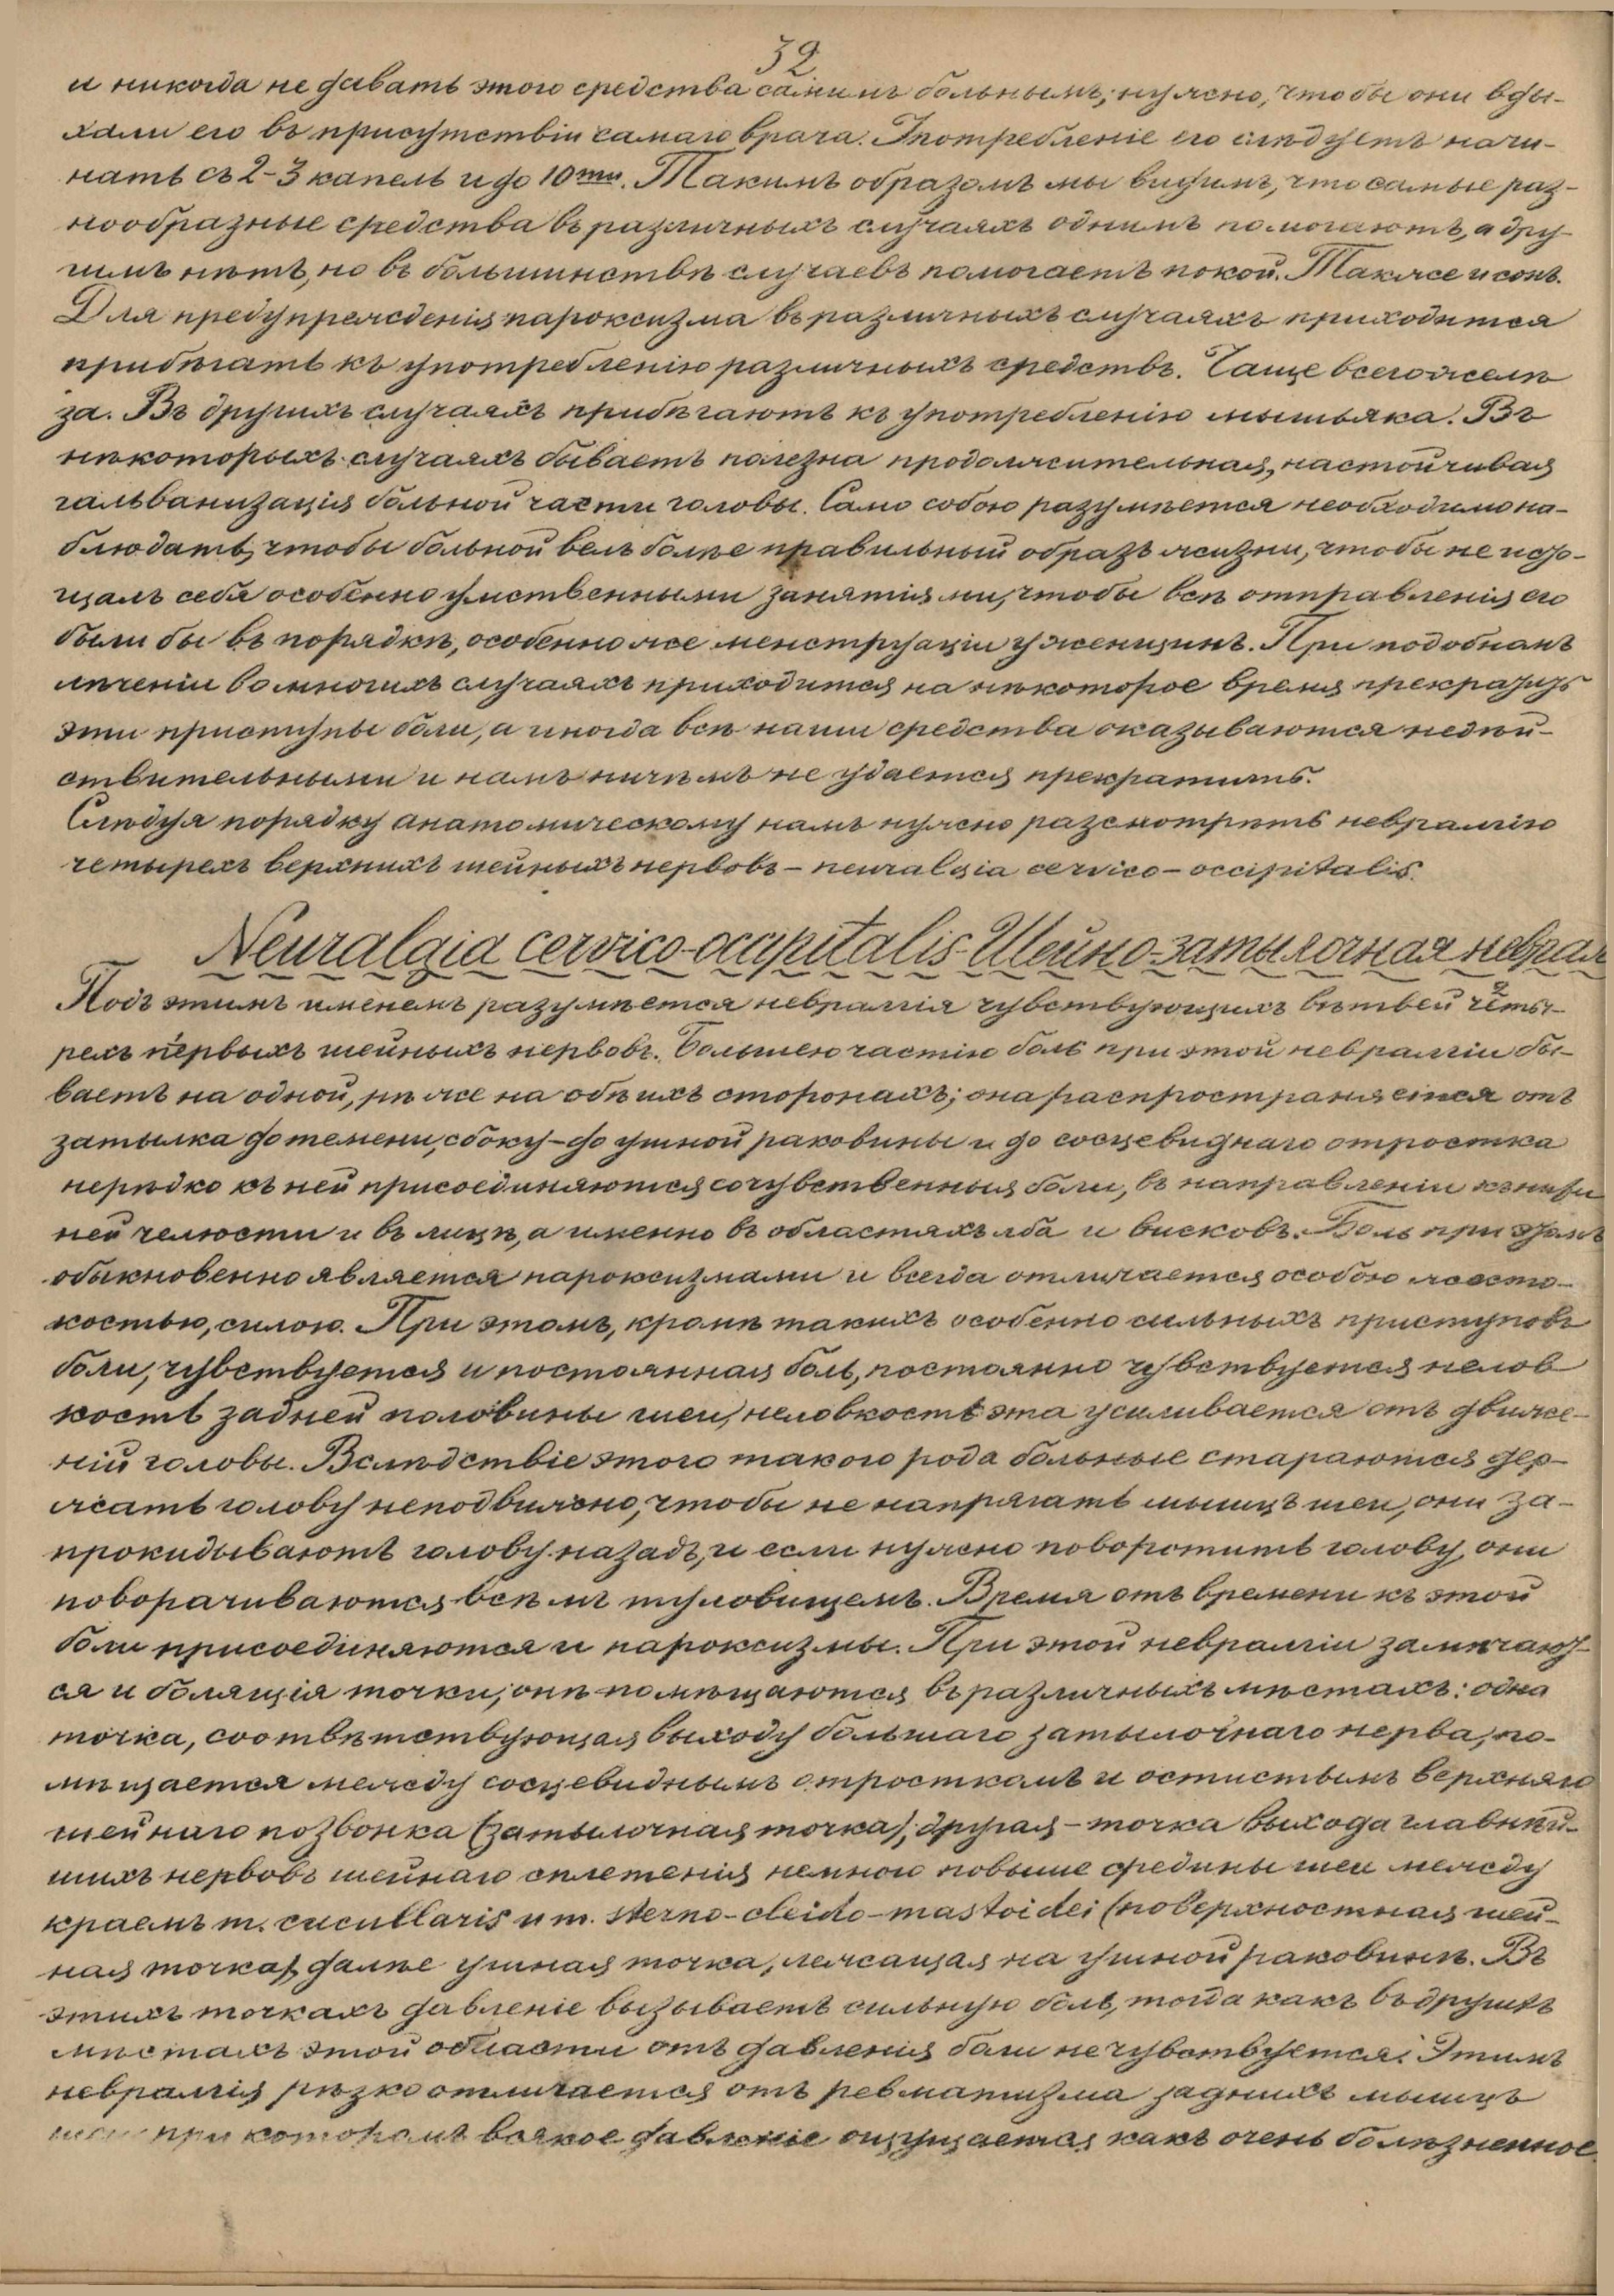 32
и никогда не давать этого средства самимъ больнымъ; нужно, чтобы они вды-
хали его въ присутствіи самаго врача. Употребленіе его слѣдуетъ начи-
нать съ 2-3 капель и до 10ти. Такимъ образомъ мы видимъ, что самые раз-
нообразные средства въ различныхъ случаяхъ однимъ помогаютъ, а дру-
гимъ нѣтъ, но въ большинствѣ случаевъ помогаетъ покой. Также и сонъ.
Для предупрежденія пароксизма въ различныхъ случаяхъ приходится
прибѣгать къ употребленію различныхъ средствъ. Чаще всего желѣ
за. Въ другихъ случаяхъ прибѣгаютъ къ употребленію мышьяка. Въ
нѣкоторыхъ случаяхъ бываетъ полезна продолжительная, настойчивая
гальванизація больной части головы. Само собою разумѣется необходимо на-
блюдать, чтобы больной велъ болѣе правильный образъ жизни, чтобы не изну-
щалъ себя особенно умственными занятіями, чтобы всѣ отправленія его
были бы въ порядкѣ, особенно же менструаціи у женщинъ. При подобномъ
лѣченіи во многихъ случаяхъ приходится на нѣкоторое время прекращать
эти приступы боли, а иногда всѣ наши средства оказываются недѣй-
ствительными и намъ ничѣмъ не удается прекратить.
Слѣдуя порядку анатомическому намъ нужно разсмотрѣть невралгію
четырехъ верхнихъ шейныхъ нервовъ - neuralgia cervico-occipitalis.
Neuralgia cervico-occipitalis-Шейно-затылочная неврал
Подъ этимъ именемъ разумѣется невралгія чувствующихъ вѣтвей четы-
рехъ первыхъ шейныхъ нервовъ. Большею частію боль при этой невралгіи бы-
ваетъ на одной, рѣже на обѣихъ сторонахъ; она распространяется отъ
затылка до темени, сбоку - до ушной раковины и до сосцевиднаго отростка
нерѣдко къ ней присоединяются сочувственныя боли, въ направленіи къ ниж
ней челюсти и въ лицѣ, а именно въ областяхъ лба и висковъ. Боль при этомъ
обыкновенно является пароксизмами и всегда отличается особою жесто-
костью, силою. При этомъ, кромѣ такихъ особенно сильныхъ приступовъ
боли, чувствуется и постоянная боль, постоянно чувствуется нелов
кость задней половины шеи, неловкость эта усиливается отъ движе-
ній головы. Вслѣдствіе этого такого рода больные стараются дер-
жать голову неподвижно, чтобы не напрягать мышцъ шеи, они за-
прокидываютъ голову назадъ, и если нужно поворотить голову, они
поворачиваются всѣмъ туловищемъ. Время отъ времени къ этой
боли присоединяются и пароксизмы. При этой невралгіи замѣчают-
ся и болящія точки; онѣ помѣщаются въ различныхъ мѣстахъ: одна
точка, соотвѣтствующая выходу большаго затылочнаго нерва, по-
мѣщается между сосцевиднымъ отросткомъ и остистымъ верхняго
шейнаго позвонка (затылочная точка); другая - точка выхода главнѣй-
шихъ нервовъ шейнаго сплетенія немного повыше средины шеи между
краемъ m. cucullaris и m. sterno-cleido-mastoidei (поверхностная шей-
ная точка) далѣе ушная точка, лежащая на ушной раковинѣ. Въ
этихъ точкахъ давленіе вызываетъ сильную боль, тогда какъ въ другихъ
мѣстахъ этой области отъ давленія боли не чувствуется. Этимъ
невралгія рѣзко отличается отъ ревматизма заднихъ мышцъ
шеи при которомъ всякое давленіе ощущается какъ очень болѣзненное